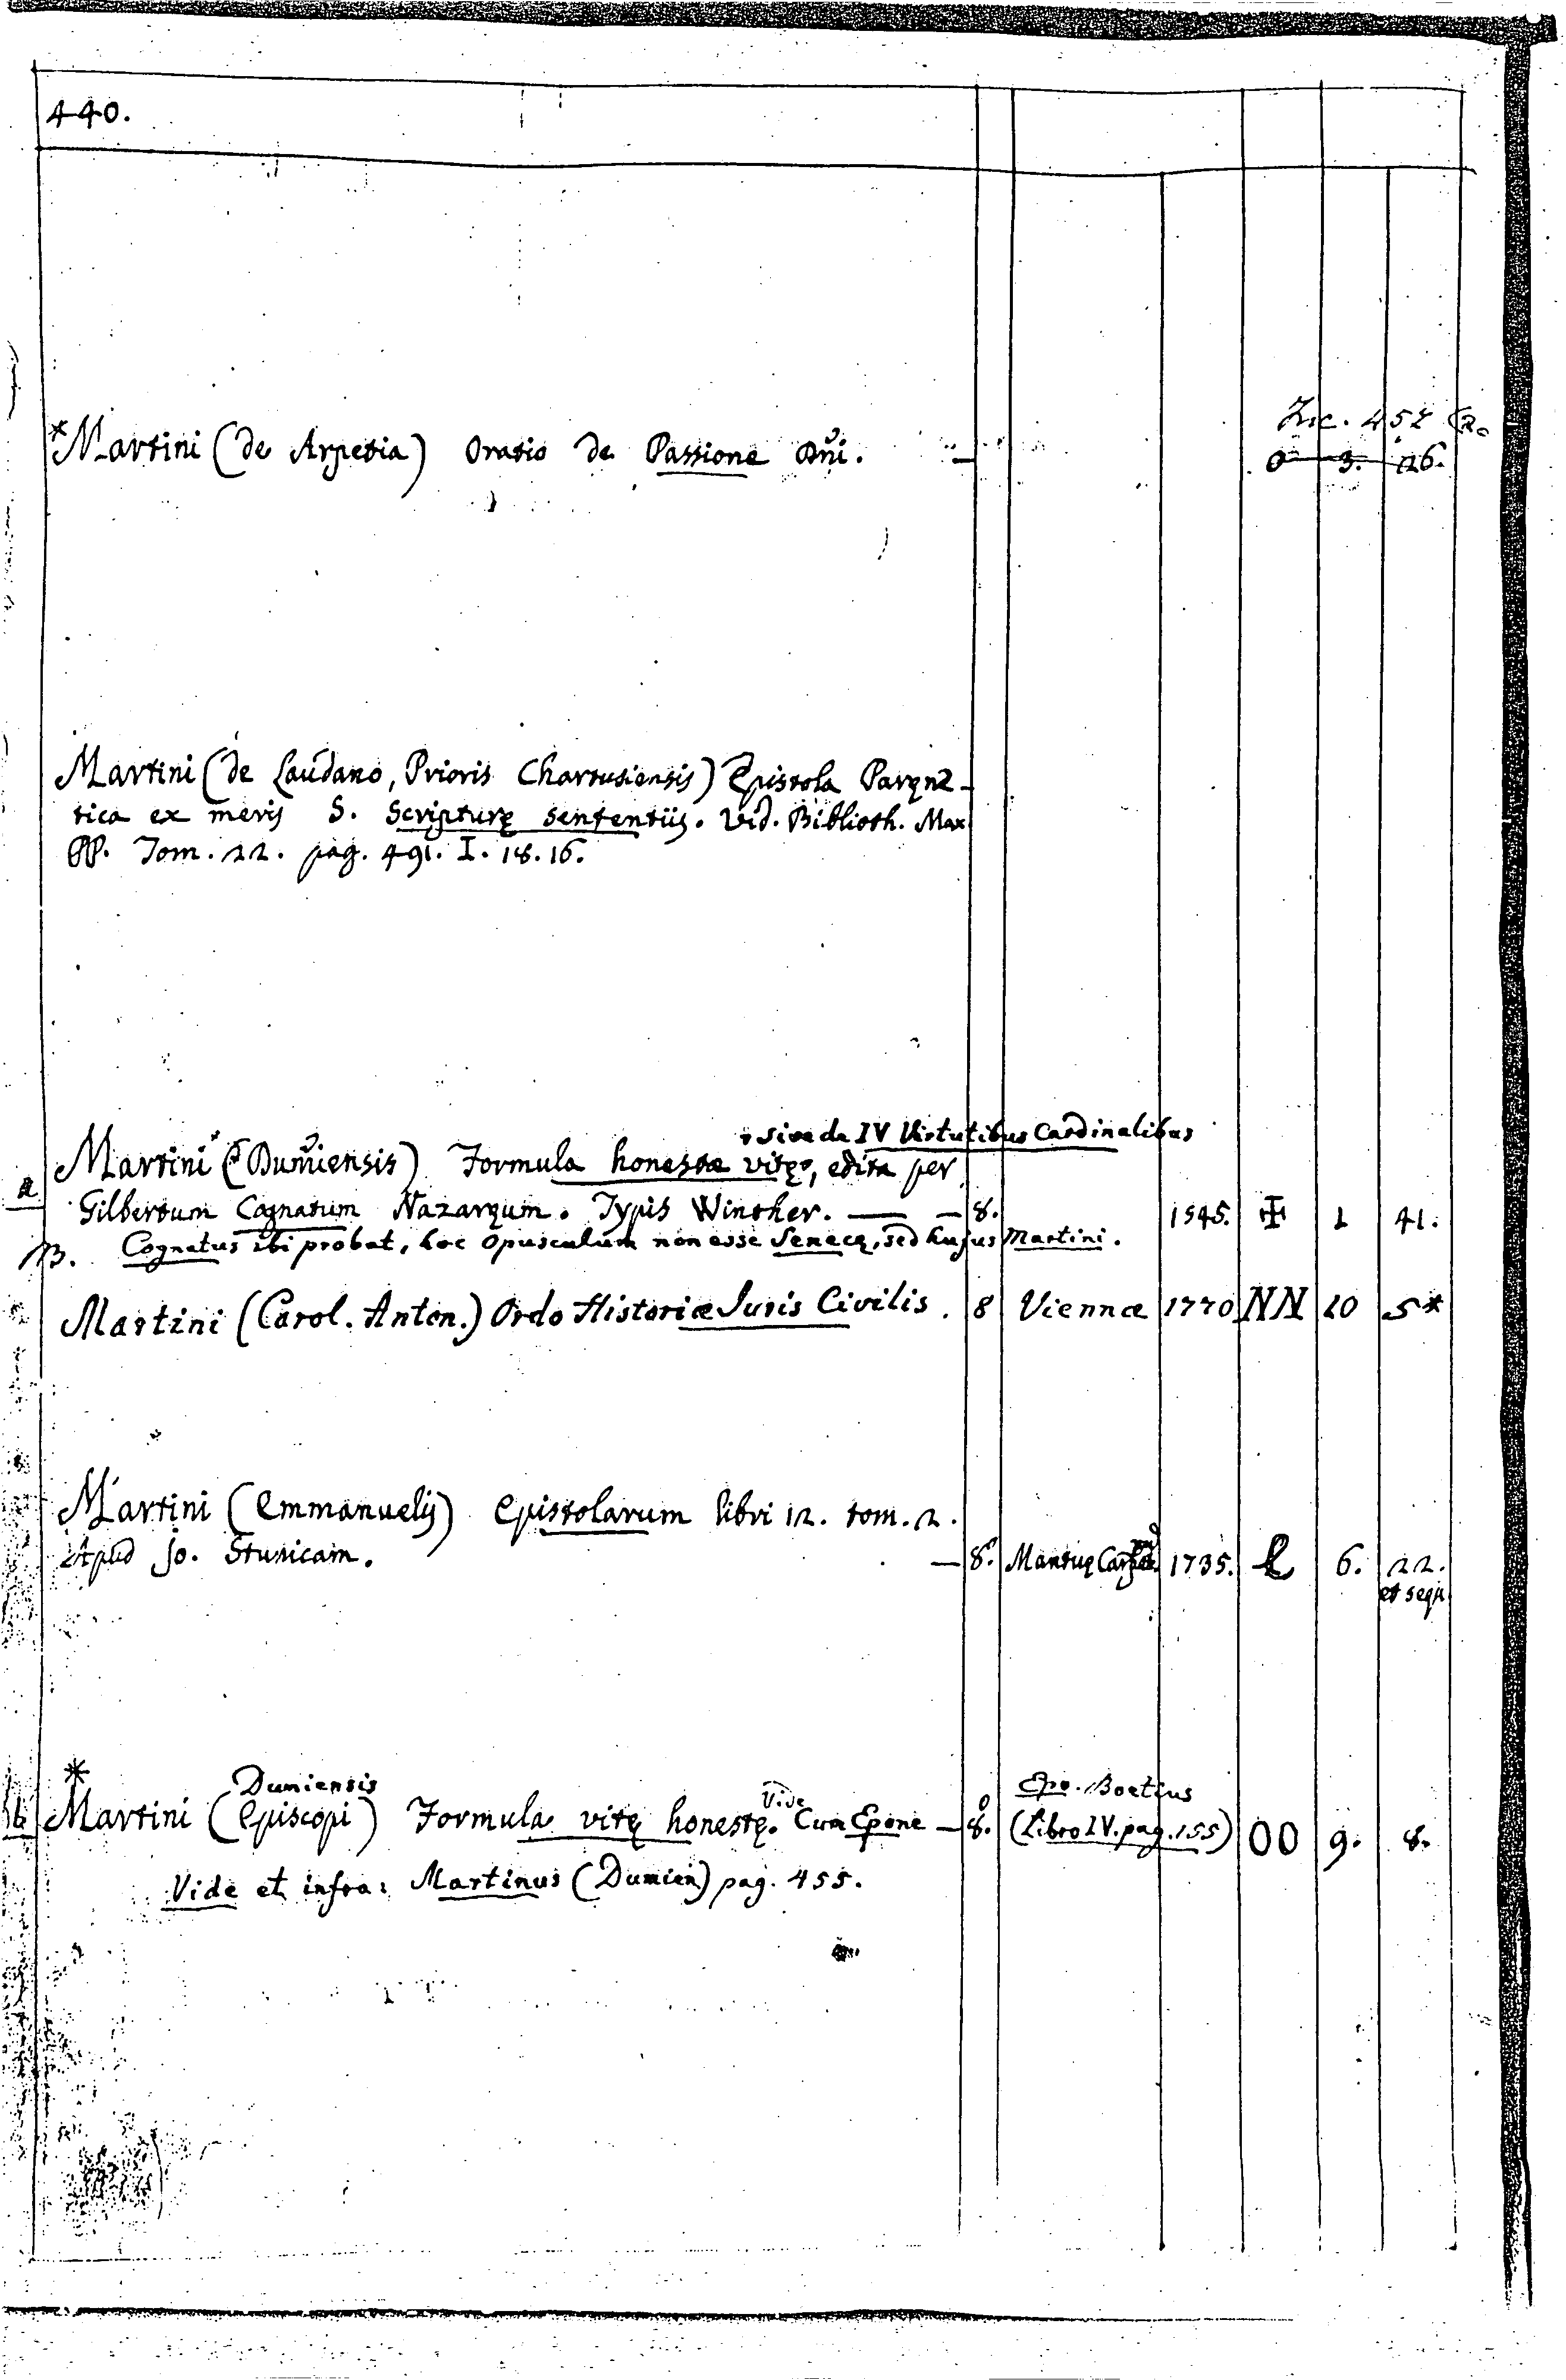 440.
Inc. 457 (2.
*Martini (de Arpetia) Oratio de Passione Dñi. — 0 3. 26.
Martini (de Laudano, Prioris Chartusiensis) Epistola Paręne-
tica ex meris S. Scripturę sententiis. Vid. Biblioth. Max
PP. Tom. 22. pag. 491. I. 18. 16.
, sive de IV Virtutibus Cardinalibus
Martini (Dumiensis) Formula honestæ vitę, edita per
a Gilbertum Cognatum Nazaręum. Typis Winther. — — 8. 1545. ✠ 1 41.
NB. Cognatus ibi probat, hoc opusculum non esse Senecę, sed hujus Martini.
Martini (Carol. Anton.) Ordo Historiæ Juris Civilis. 8 Viennæ 1770 NN 10 5*
Martini (Emmanuelis) Epistolarum libri 12. tom. 2.
Apud Jo. Stunicam. — 8. Mantuę 1735. L 6. 22.
et seqq
*
Dumiensis Vide Epo. Boetius
b Martini (Episcopi) Formula vitę honestę. Cum Epone — 8. (Libro IV. pag. 155) OO 9. 8.
Vide et infra: Martinus (Dumien) pag. 455.